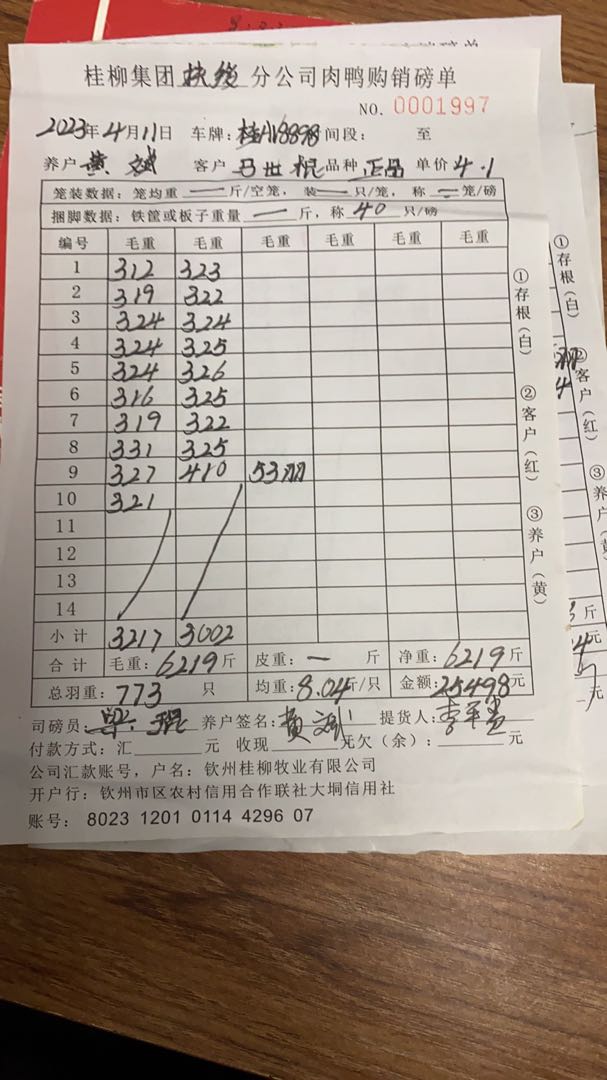 桂柳集团扶绥分公司肉鸭购销磅单
NO. 0001997
2023年4月11日 车牌: 桂A18898 间段: 至
养户 黄斌 客户 马世棍 品种 正品 单价 4.1
笼装数据: 笼均重 — 斤/空笼, 装 — 只/笼, 称 — 笼/磅
捆脚数据: 铁筐或板子重量 — 斤, 称 40 只/磅
编号 毛重 毛重 毛重 毛重 毛重 毛重
1 312 323
2 319 322
3 324 324
4 324 325
5 324 326
6 316 325
7 319 322
8 331 325
9 327 410 53羽
10 321
11
12
13
14
小计 3217 3002
合计 毛重: 6219斤 皮重: — 斤 净重: 6219斤
总羽重: 773 只 均重: 8.04斤/只 金额: 25498元
司磅员: 养户签名: 黄斌 提货人: 李
付款方式: 汇 元 收现 元欠(余): 元
公司汇款账号, 户名: 钦州桂柳牧业有限公司
开户行: 钦州市区农村信用合作联社大垌信用社
账号: 8023 1201 0114 4296 07
①存根(白) ②客户(红) ③养户(黄)
①存根(白) ②客户(红) ③养户(黄)